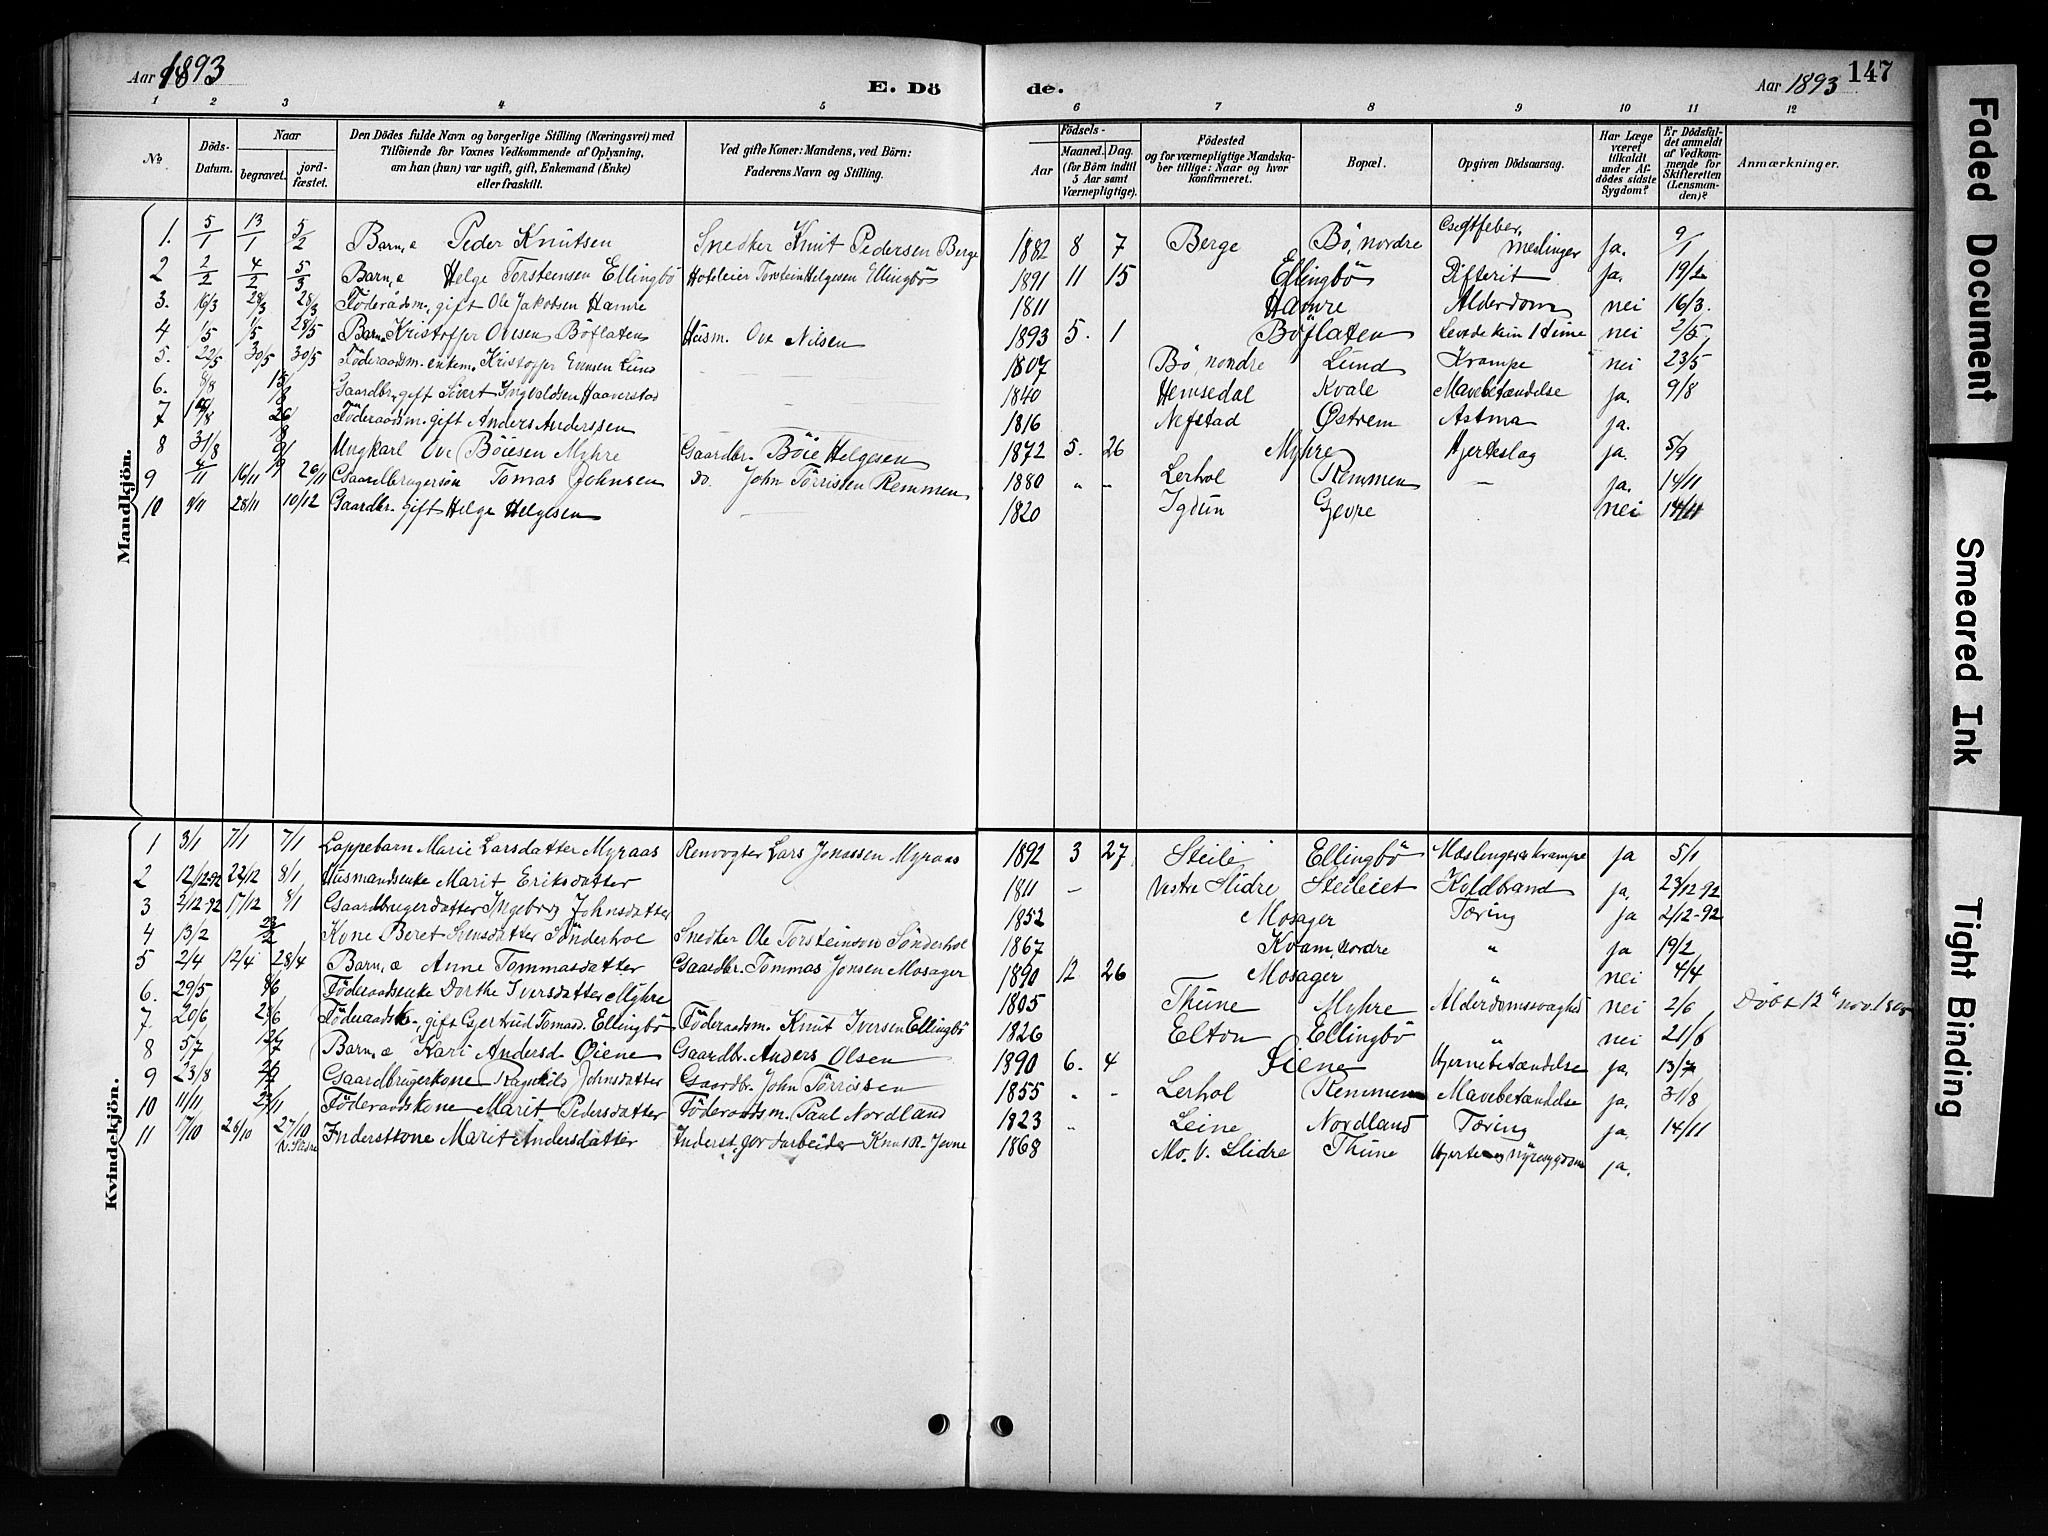 Aar 1893
E. Dö
de.
Aar 1893
147
1 2 3 4 5 6 7 8 9 10 11 12
No.
Döds-Datum.
Naar
begravet.
jord-fæstet.
Den Dödes fulde Navn og borgerlige Stilling (Næringsvei) med
Tilföiende for Voxnes Vedkommende af Oplysning,
om han (hun) var ugift, gift, Enkemand (Enke)
eller fraskilt.
Ved gifte Koner: Mandens, ved Börn:
Faderens Navn og Stilling.
Födsels-
Aar
Maaned.
Dag.
(for Börn indtil
5 Aar samt
Værnepligtige).
Födested
og for værnepligtige Mandska-
ber tillige: Naar og hvor
konfirmeret.
Bopæl.
Opgiven Dödsaarsag.
Har Læge
været
tilkaldt
under Af-
dödes sidste
Sygdom?
Er Dödsfal-
det anmeldt
af Vedkom-
mende for
Skifteretten
(Lensman-
den)?
Anmærkninger.
Mandkjön.
1. 5/1 13/1 5/2 Barn, æ Peder Knutsen Snedker Knut Pedersen Berge 1882 8 7 Berge Bö, nordre meslinger ja. 9/1
2 2/2 4/2 5/3 Barn, æ Helge Torsteinsen Ellingbö Hoteleier Torstein Helgesen Ellingbös 1891 11 15 Ellingbö Difterit ja. 19/2
3. 16/3 28/3 28/3 Föderådsm., gift Ole Jakobsen Hamre 1811 Hamre Alderdom nei 16/3.
4 1/5 1/5 28/5 Barn Kristoffer Ovesen Böflaten Husm. Ove Nilsen 1893 5. 1 Böflaten Levede kun 1 time nei 2/5
5. 22/5 30/5 30/5 Föderaadsm. enkem. Kristoffer Lund 1807 Bö, nondre Lund Krampe nei 23/5
6. 8/8 15/8 Gaardbr., gift Sivert Ingvaldsen Haaverstad 1840 Hemsedal Kvale Mavebetændelse ja. 9/8
7 /8 26/8 Föderaadsm. gift Anders Anderssen 1816 Nefstad Østrem Astma ja.
8 31/8 9/9 Ungkarl Ove Böiesen Myhre Gaardbr. Böie Helgesen 1872 5. 26 Myhre Hjerteslag ja. 5/9
9 4/11 16/11 26/11 Gaardbrugersön Tomas Johnsen do. John Törrisen Remmen 1880 " " Lerhol Remmen — ja. 14/11
10 9/11 28/11 10/12 Gaardbr. gift Helge Helgesen 1820 Igdun Gjevre nei 14/11
Kvindekjön.
1 3/1 7/1 7/1 Lappebarn Marie Larsdatter Myraas Renvogter Lars Jonassen Myraas 1892 3 27 Steile Ellingbö Mæslinger & krampe ja 5/1
2 12/12-92 22/12 8/1 Husmandsenke Marit Eriksdatter 1811 — Vestre Slidre Steileiet Koldbrand ja, 23/12-92
3 2/12-92 17/12 8/1 Gaardbrugerdatter Ingeborg Johnsdatter 1852 Mosager Tæring ja 2/12-92
4 13/2 23/2 Kone Beret Svensdatter Sönderhol Snedker Ole Torsteinson Sönderhol 1867 Kvam, nordre " ja 19/2
5 2/4 12/4 28/4 Barn, æ Anne Tommasdatter Gaardbr. Tommas Jonsen Mosager 1890 12 26 Mosager " nei 4/4
6. 29/5 8/6 Föderaadsenke Dorthe Iversdatter Myhre 1805 Thune Myhre Alderdomssvaghed nei 2/6 Döbt 12" nov. 1805
7. 20/6 28/6 Föderaadsk., gift Gjertrud Tomasd. Ellingbö Föderaadsm. Knut Iversen Ellingbö 1826 Elton Ellingbö " nei 21/6
8 5/7 12/7 Barn, æ Kari Andersd Øiene Gaardbr. Anders Olsen 1890 6. 4 Øiene Hjernebetændelse ja. 13/7
9 23/8 Gaardbrugerkone Ragnhild Johnsdatter Gaardbr. John Törrissen 1855 " - Lerhol Remmen Mavebetændelse ja. 31/8
10 11/11 23/11 Föderaadskone Marit Pedersdatter Föderaadsm. Paul Nordland 1823 " Leine Nordland Tæring ja. 14/11
11 7/10 26/10 27/10 V. Slidre Inderstkone Marit Andersdatter Inderst, jordarbeider Knut 1868 Mo. V. Slidre Thune Hjerte og nyresygdom ja.
Faded Document
Smeared Ink
Tight Binding